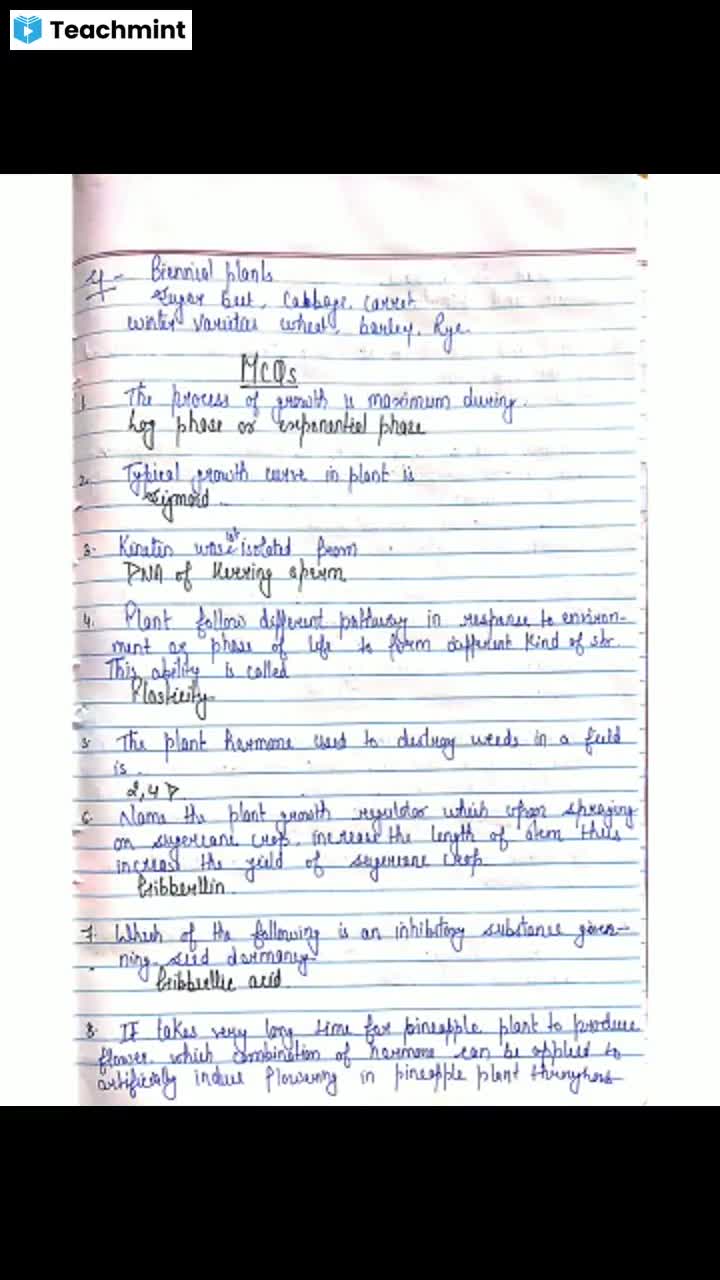 Teachmint
4- Biennial plants
Sugar beet, Cabbage, carret
winter varieties wheat, barley, Rye.
MCQs
1. The process of growth is maximum during.
Log phase or exponential phase
2. Typical growth curve in plant is
Sigmoid
3. Kinetin was 1st isolated from
DNA of Herring sperm
4. Plant follow different pathway in response to environ-
ment or phase of life to form different kind of str.
This ability is called
Plasticity
5. The plant hormone used to destroy weeds in a field
is
2,4 D
6. Name the plant growth regulator which upon spraying
on sugercane crop, increase the length of stem thus
increase the yield of sugercane crop
Gibberllin
7. Which of the following is an inhibitory substance gover-
ning seed dormancy
Gibberllic acid
8. It takes very long time for pineapple plant to produce
flower which combination of hormone can be applied to
artificially induce flowering in pineapple plant